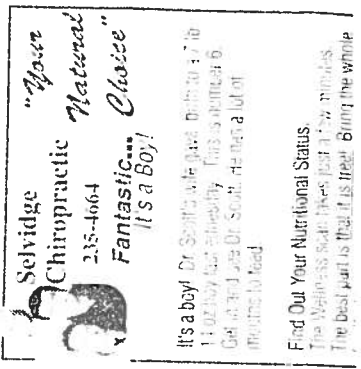 Selvidge
Chiropractic
235-4664
"Your
Natural
Choice"
Fantastic...
It's a Boy!
It's a boy! Dr. Scott's wife gave birth to a 7 lb
11 oz boy last Thursday. This is number 6.
Get in and see Dr. Scott. He has a lot of
mouths to feed
Find Out Your Nutritional Status.
The Wellness scan takes just a few minutes.
The best part is that it is free! Bring the whole